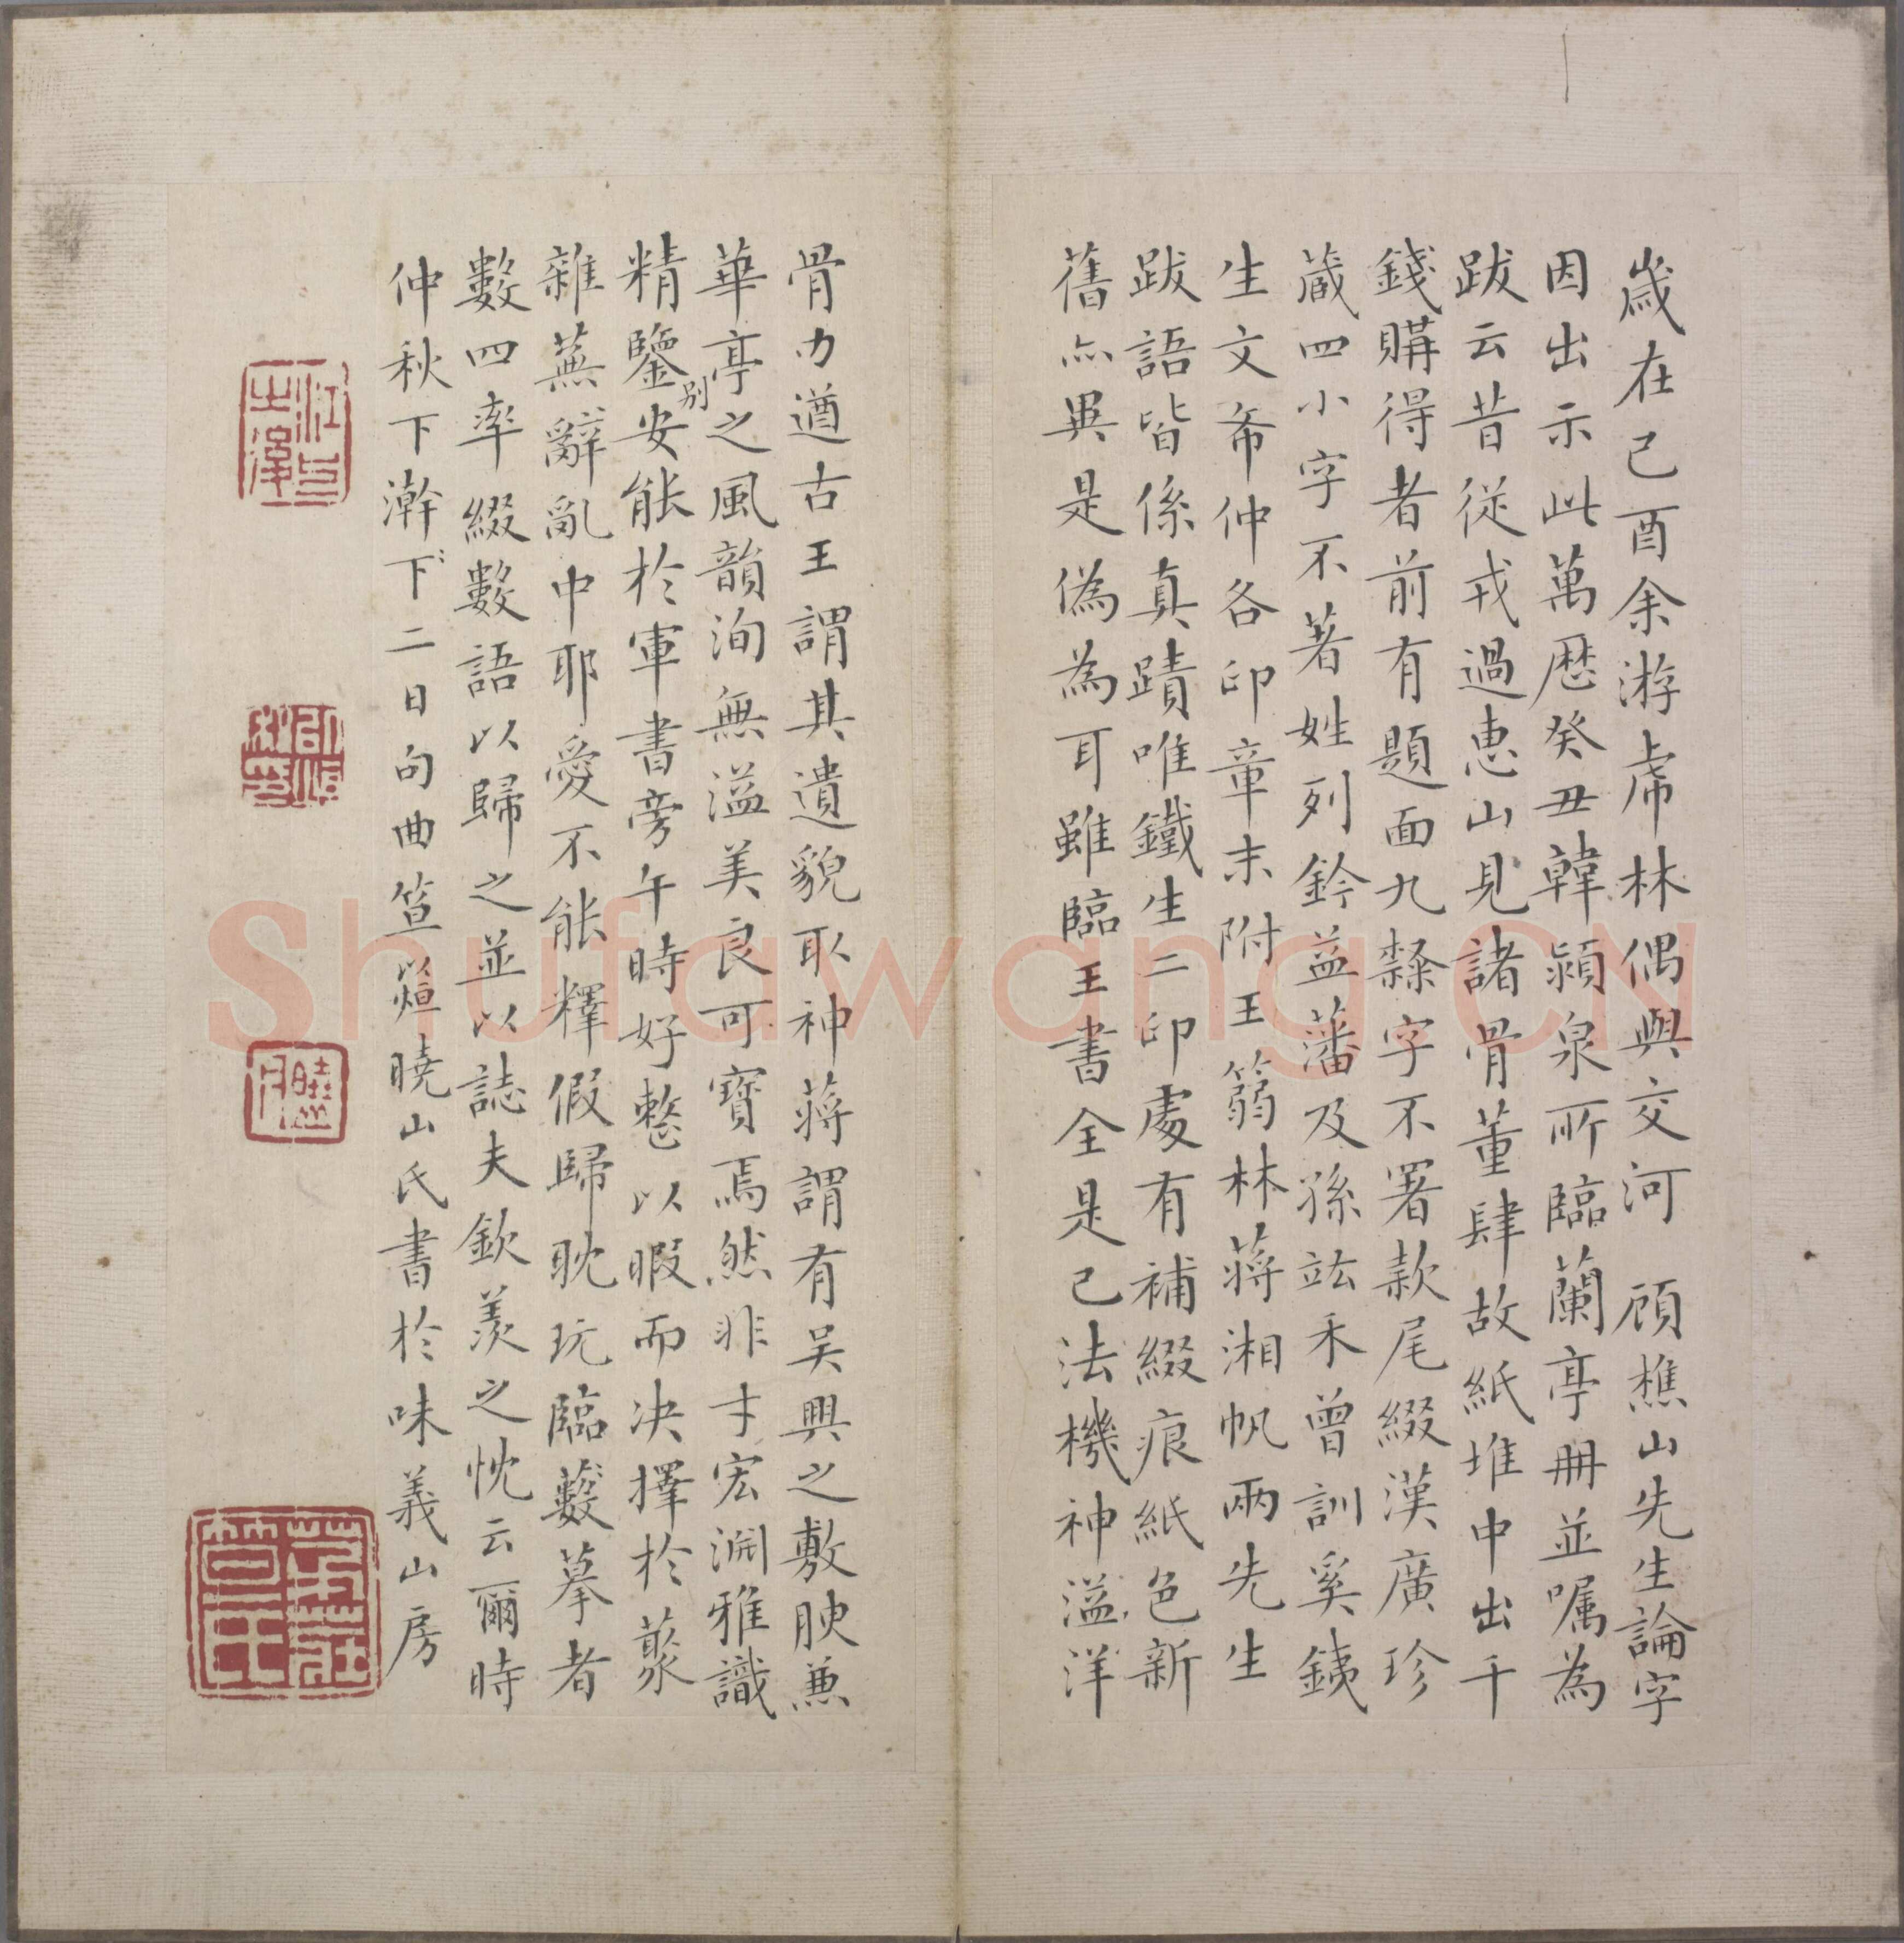 歲在己酉余游虎林偶與交河　顧樵山先生論字
因出示此萬歷癸丑韓潁泉所臨蘭亭冊並囑為
跋云昔從戎過惠山見諸骨董肆故紙堆中出千
錢購得者前有題面九隸字不署款尾綴漢廣珍
藏四小字不著姓列鈐益藩及孫竑禾曾訓奚銕
生文希仲各印章末附王篛林蔣湘帆兩先生
跋語皆係真蹟唯鐵生二印處有補綴痕紙色新
舊亦異是偽為耳雖臨王書全是己法機神溢洋
骨力遒古王謂其遺貌取神蔣謂有吴興之敷腴兼
華亭之風韻洵無溢美良可寶焉然非才宏淵雅識
精鑒别安能於軍書旁午時好整以暇而决擇於叢
雜蕪辭亂中耶愛不能釋假歸耽玩臨藂摹者
數四率綴數語以歸之並以誌夫欽羡之忱云爾時
仲秋下澣下二日句曲笪以煊曉山氏書於味義山房
Shufawang.CN